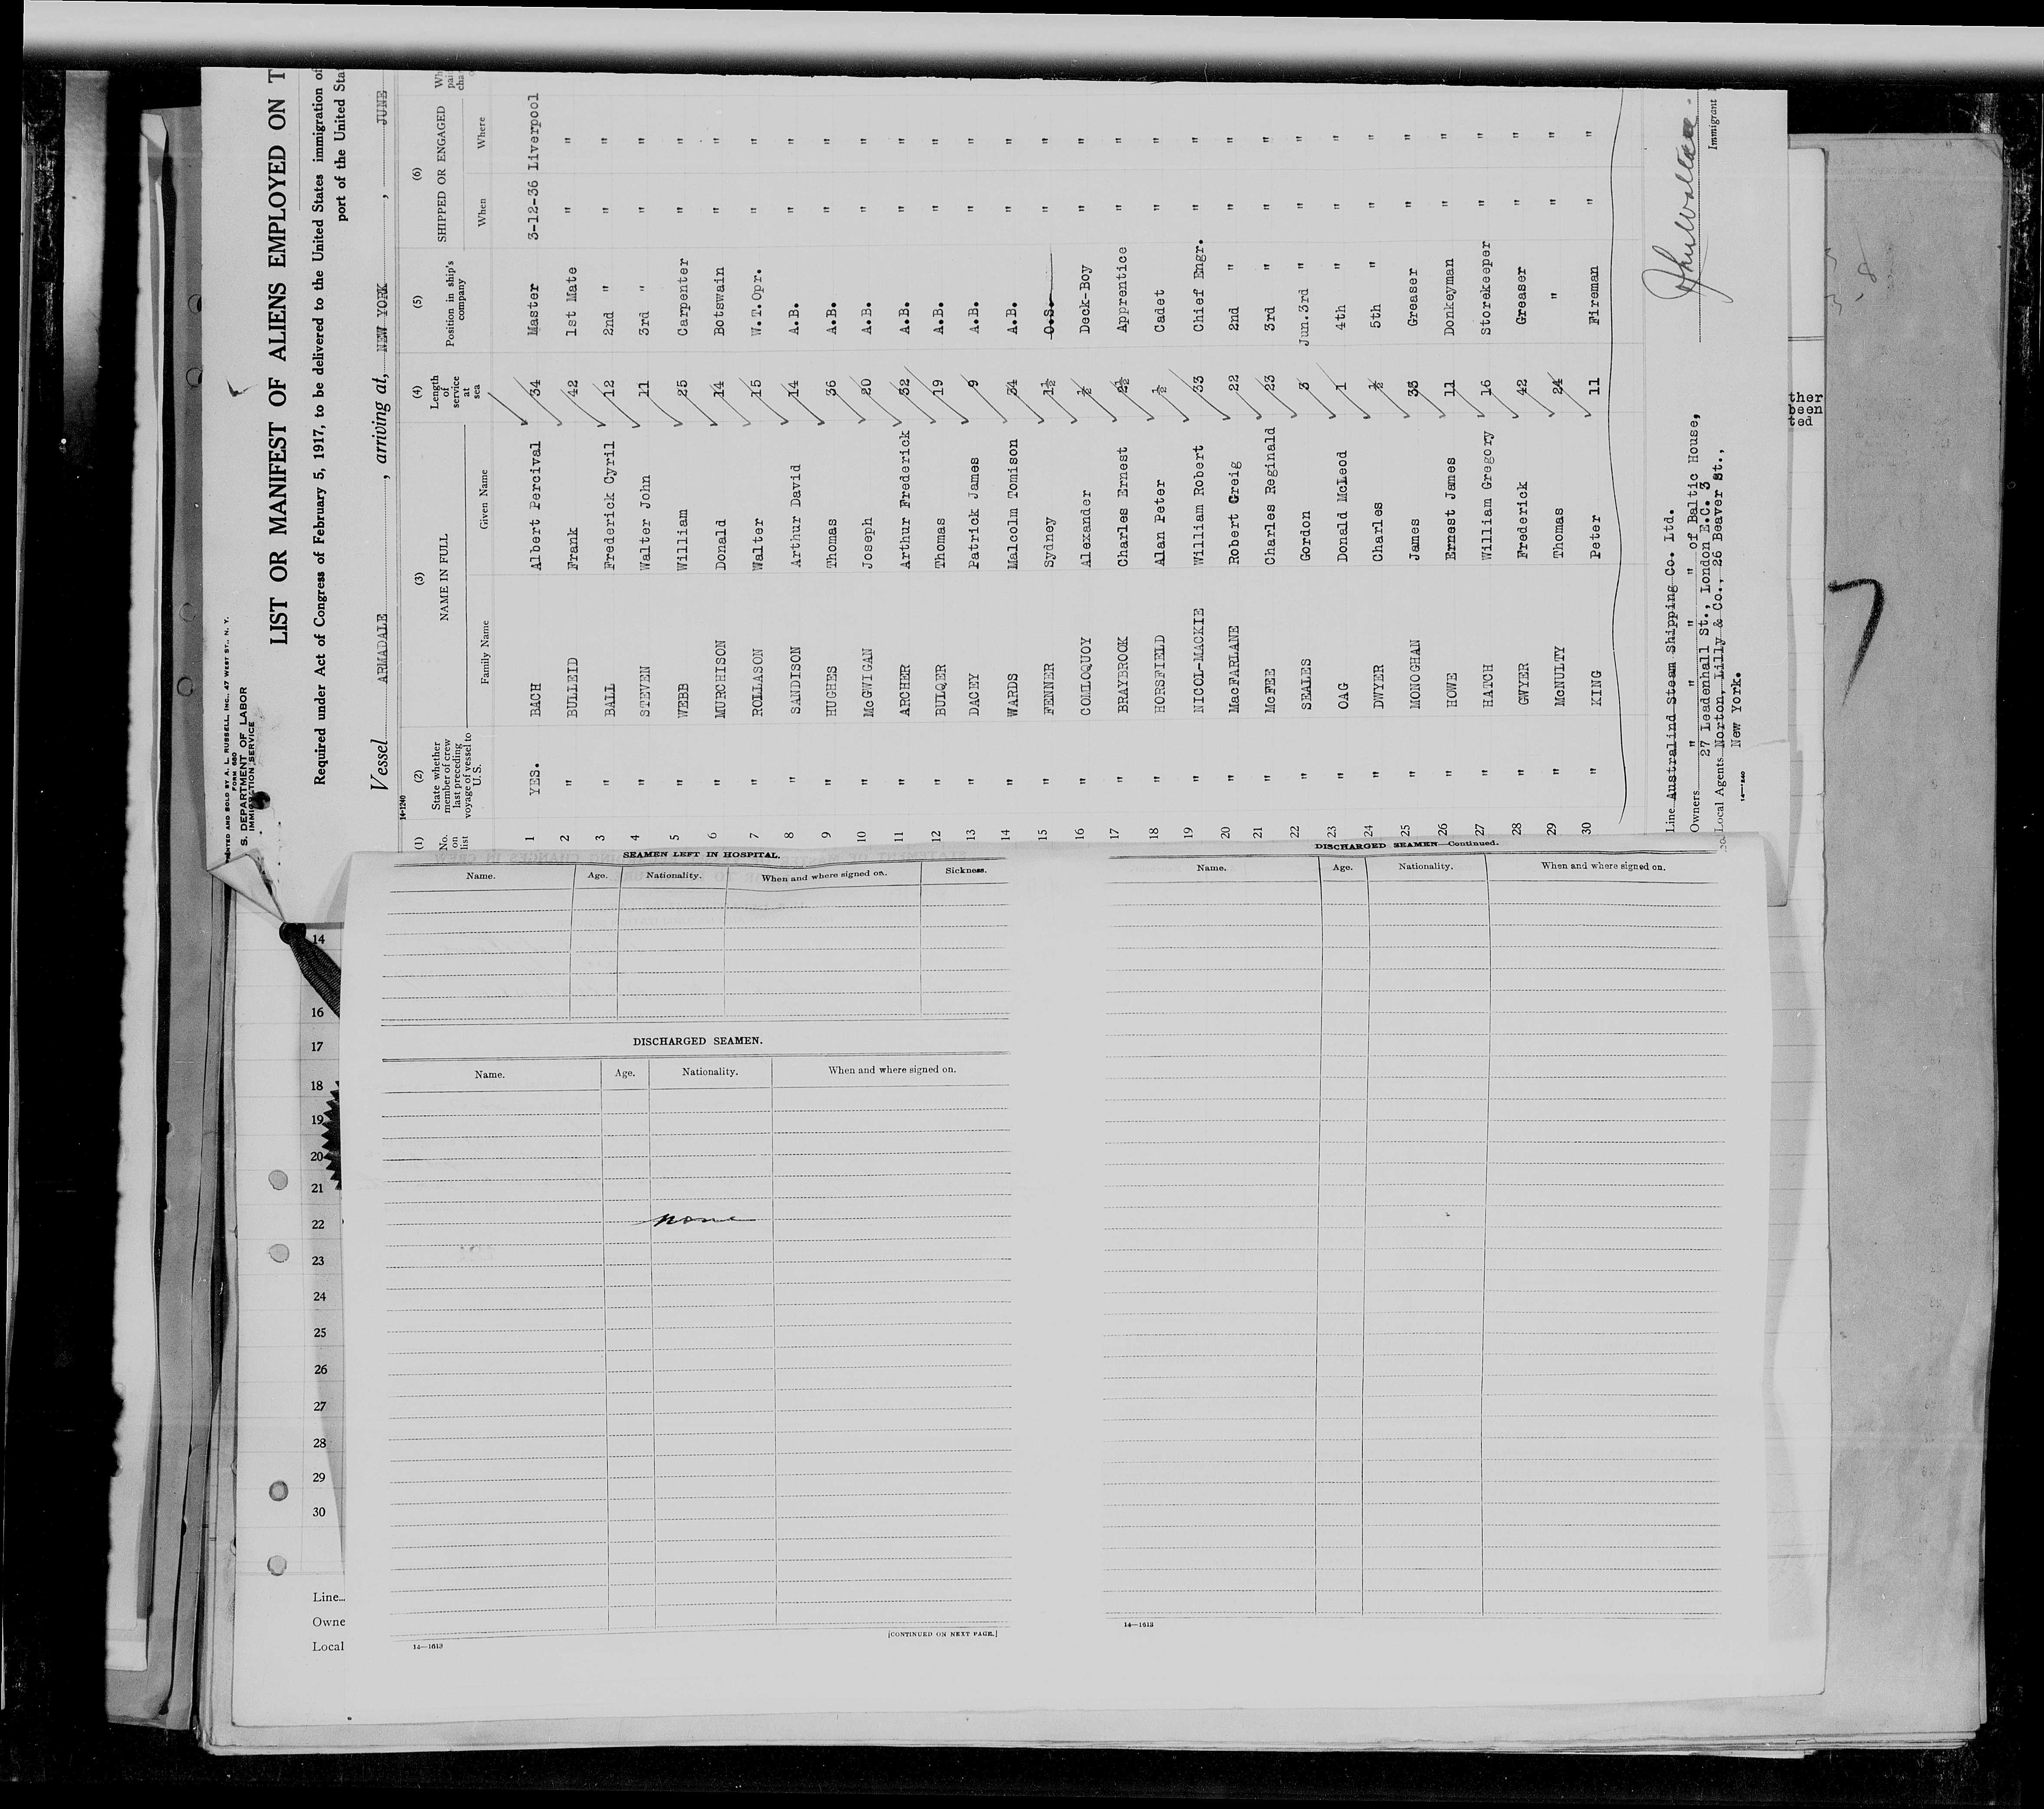 PRINTED AND SOLD BY A. L. RUSSELL, INC., 47 WEST ST., N. Y.
FORM 680
S. DEPARTMENT OF LABOR
IMMIGRATION SERVICE
LIST OR MANIFEST OF ALIENS EMPLOYED ON T
Required under Act of Congress of February 5, 1917, to be delivered to the United States immigration of
port of the United Sta
Vessel ARMADALE, arriving at, NEW YORK, JUNE
14-1240
(1) (2) (3) (4) (5) (6)
No. on list
State whether member of crew last preceding voyage of vessel to U.S.
NAME IN FULL
Family Name Given Name
Length of service at sea
Position in ship's company
SHIPPED OR ENGAGED
When Where
1 YES. BACH Albert Percival 34 Master 3-12-36 Liverpool
2 " BULLEID Frank 42 1st Mate " "
3 " BALL Frederick Cyril 12 2nd " " "
4 " STEVEN Walter John 11 3rd " " "
5 " WEBB William 25 Carpenter " "
6 " MURCHISON Donald 14 Botswain " "
7 " ROLLASON Walter 15 W.T.Opr. " "
8 " SANDISON Arthur David 14 A.B. " "
9 " HUGHES Thomas 36 A.B. " "
10 " McGWIGAN Joseph 20 A.B. " "
11 " ARCHER Arthur Frederick 32 A.B. " "
12 " BULQER Thomas 19 A.B. " "
13 " DACEY Patrick James 9 A.B. " "
14 " WARDS Malcolm Tomison 34 A.B. " "
15 " FENNER Sydney 1½ O.S. " "
16 " COMLOQUOY Alexander ½ Deck-Boy " "
17 " BRAYBROOK Charles Ernest 2½ Apprentice " "
18 " HORSFIELD Alan Peter ½ Cadet " "
19 " NICOL-MACKIE William Robert 33 Chief Engr. " "
20 " MacFARLANE Robert Greig 22 2nd " " "
21 " McFEE Charles Reginald 23 3rd " " "
22 " SEALES Gordon 3 Jun.3rd " " "
23 " OAG Donald McLeod 1 4th " " "
24 " DWYER Charles ½ 5th " " "
25 " MONOGHAN James 33 Greaser " "
26 " HOWE Ernest James 11 Donkeyman " "
27 " HATCH William Gregory 16 Storekeeper " "
28 " GWYER Frederick 42 Greaser " "
29 " McNULTY Thomas 24 " " "
30 " KING Peter 11 Fireman " "
Line Australind Steam Shipping Co. Ltd.
Owners " " " " of Baltic House,
27 Leadenhall St., London E.C. 3
Local Agents Norton, Lilly & Co., 26 Beaver St.,
New York.
Immigrant
ther
been
ted
SEAMEN LEFT IN HOSPITAL.
Name. Age. Nationality. When and where signed on. Sickness.
DISCHARGED SEAMEN.
Name. Age. Nationality. When and where signed on.
none
14—1613
[CONTINUED ON NEXT PAGE.]
DISCHARGED SEAMEN—Continued.
Name. Age. Nationality. When and where signed on.
14—1613
14
16
17
18
19
20
21
22
23
24
25
26
27
28
29
30
Line
Owne
Local
7